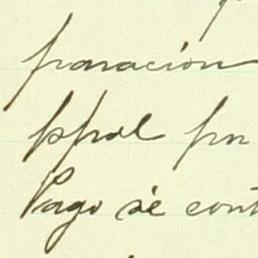 paración
ppal por
Pago se cont